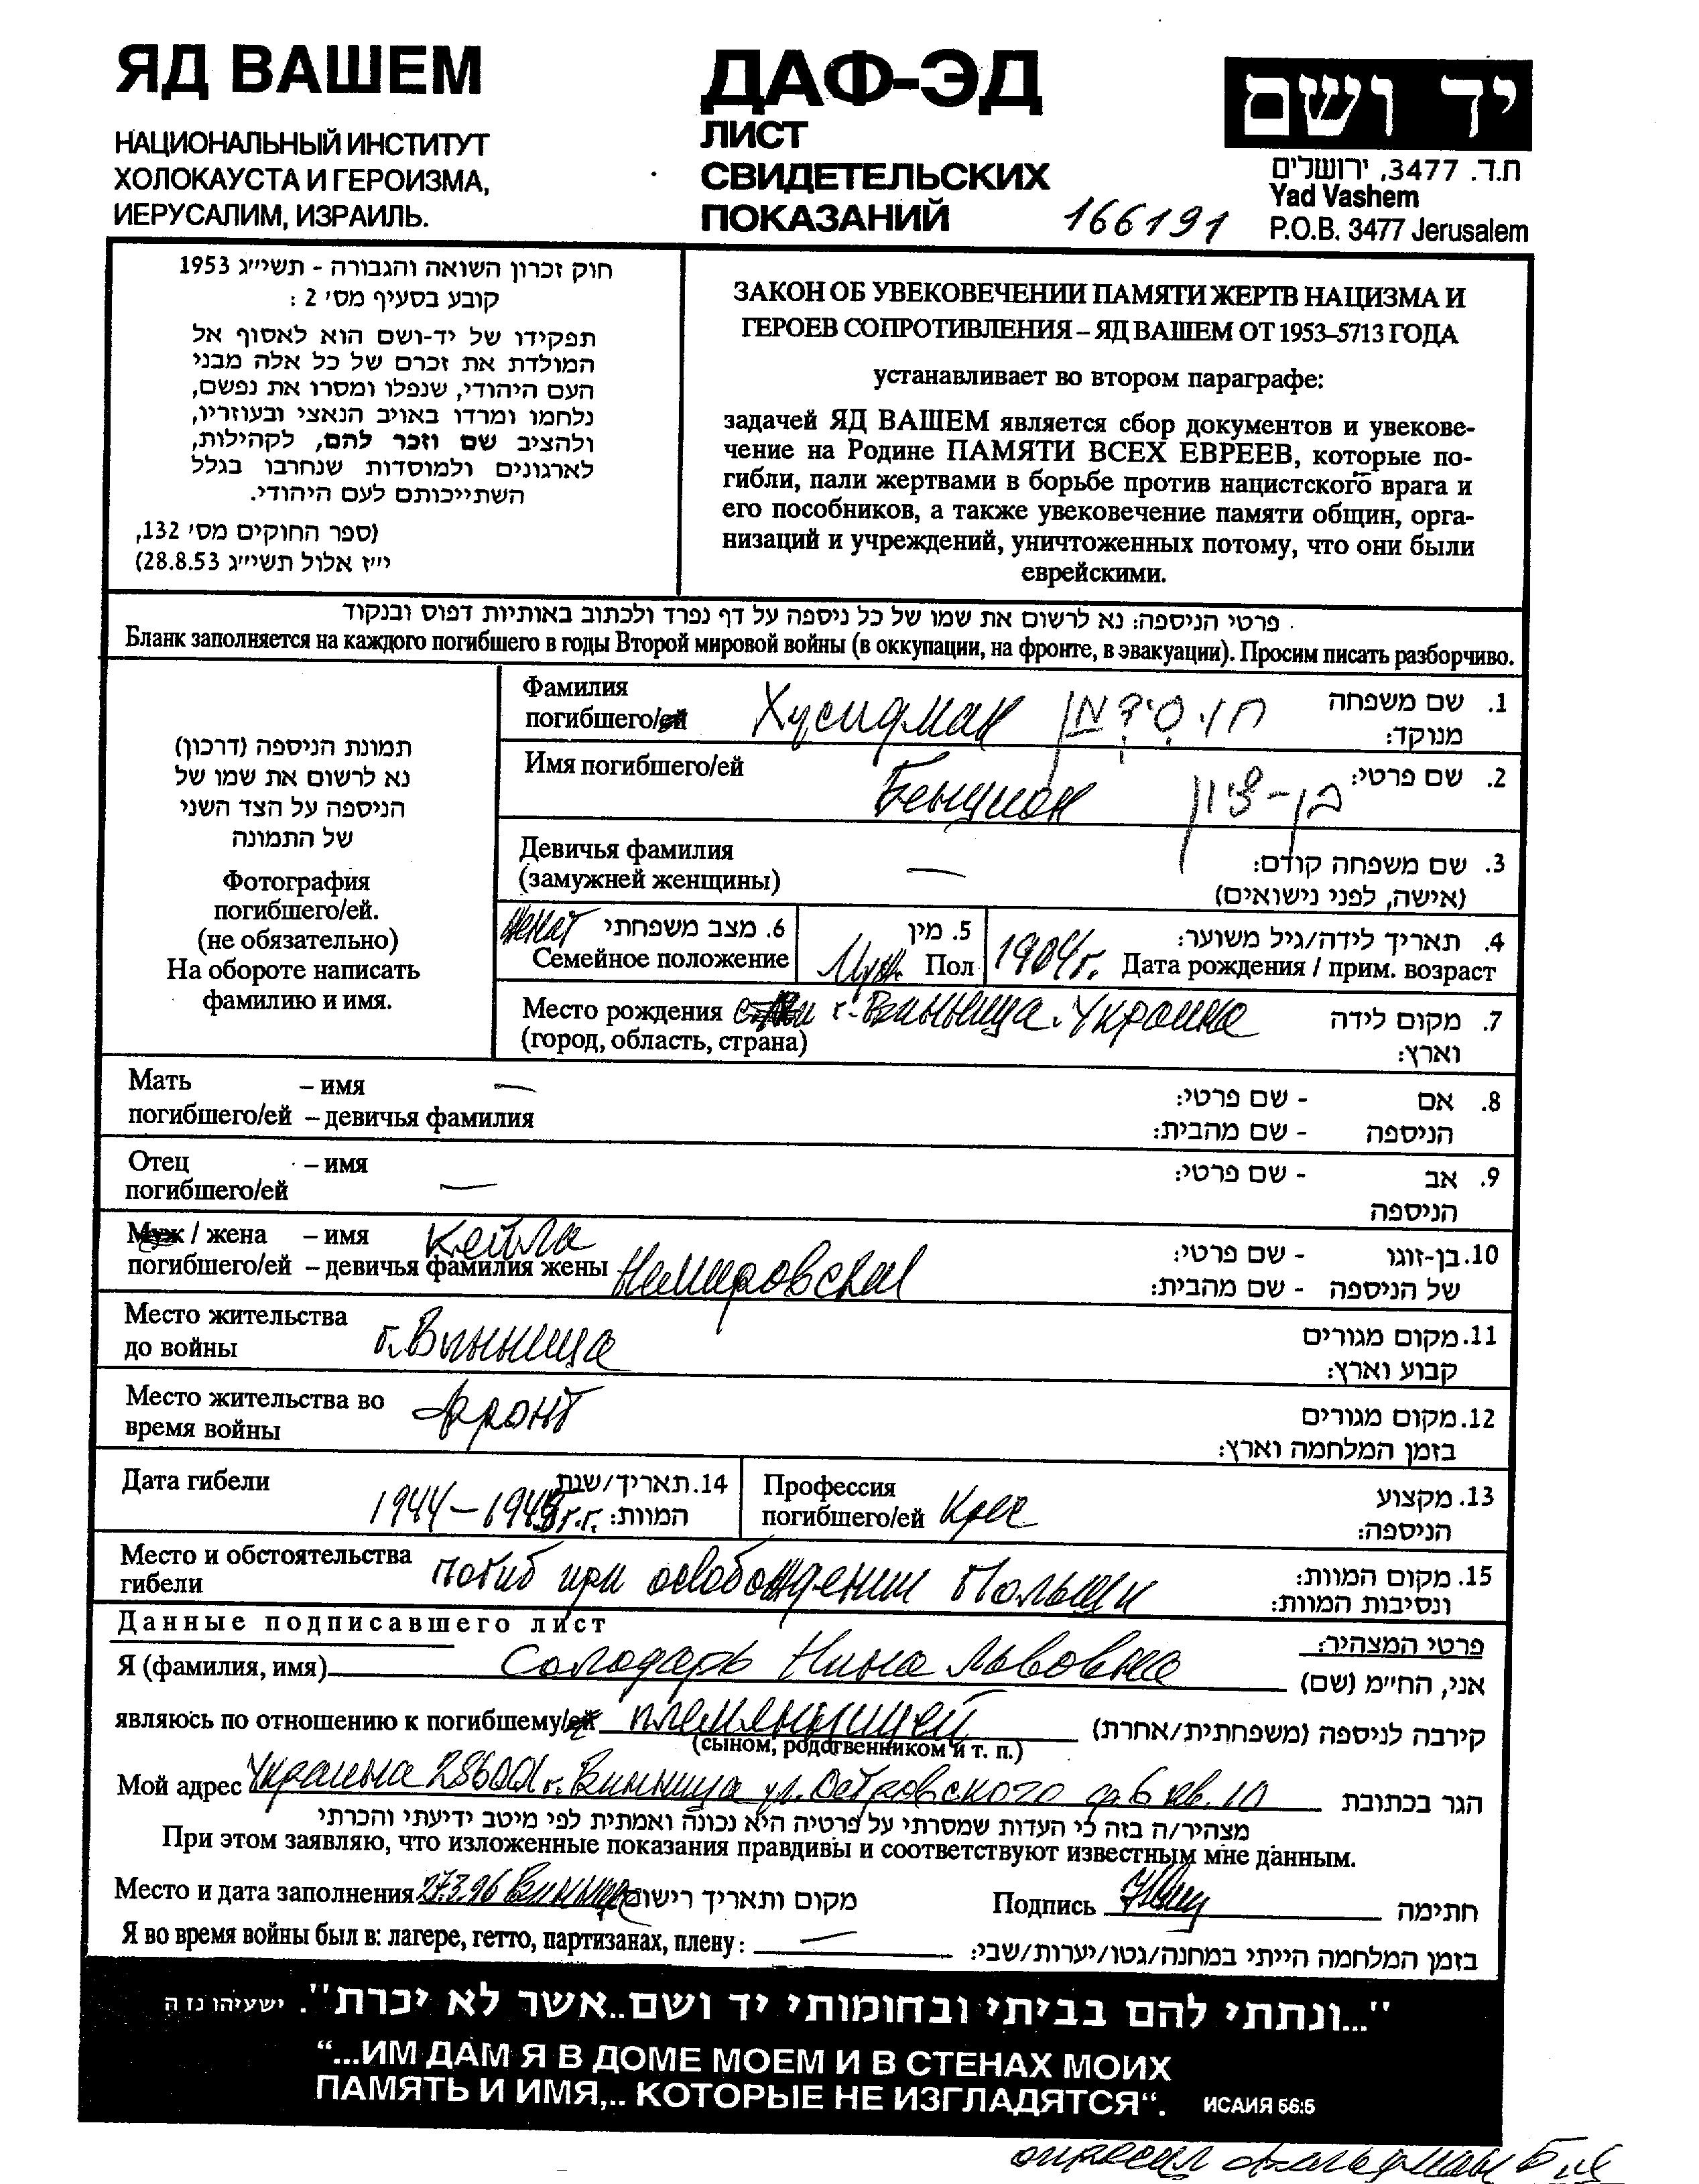 ЯД ВАШЕМ
НАЦИОНАЛЬНЫЙ ИНСТИТУТ
ХОЛОКАУСТА И ГЕРОИЗМА,
ИЕРУСАЛИМ, ИЗРАИЛЬ.
ДАФ-ЭД
ЛИСТ
СВИДЕТЕЛЬСКИХ
ПОКАЗАНИЙ
166191
יד ושם
ת.ד. 3477, ירושלים
Yad Vashem
P.O.B. 3477 Jerusalem
חוק זכרון השואה והגבורה - תשי״ג 1953
קובע בסעיף מס׳ 2 :
תפקידו של יד-ושם הוא לאסוף אל
המולדת את זכרם של כל אלה מבני
העם היהודי, שנפלו ומסרו את נפשם,
נלחמו ומרדו באויב הנאצי ובעוזריו,
ולהציב שם וזכר להם, לקהילות,
לארגונים ולמוסדות שנחרבו בגלל
השתייכותם לעם היהודי.
(ספר החוקים מס׳ 132,
י״ז אלול תשי״ג 28.8.53)
ЗАКОН ОБ УВЕКОВЕЧЕНИИ ПАМЯТИ ЖЕРТВ НАЦИЗМА И
ГЕРОЕВ СОПРОТИВЛЕНИЯ – ЯД ВАШЕМ ОТ 1953–5713 ГОДА
устанавливает во втором параграфе:
задачей ЯД ВАШЕМ является сбор документов и увекове-
чение на Родине ПАМЯТИ ВСЕХ ЕВРЕЕВ, которые по-
гибли, пали жертвами в борьбе против нацистского врага и
его пособников, а также увековечение памяти общин, орга-
низаций и учреждений, уничтоженных потому, что они были
еврейскими.
פרטי הניספה: נא לרשום את שמו של כל ניספה על דף נפרד ולכתוב באותיות דפוס ובנקוד
Бланк заполняется на каждого погибшего в годы Второй мировой войны (в оккупации, на фронте, в эвакуации). Просим писать разборчиво.
תמונת הניספה (דרכון)
נא לרשום את שמו של
הניספה על הצד השני
של התמונה
Фотография
погибшего/ей.
(не обязательно)
На обороте написать
фамилию и имя.
Фамилия
погибшего/ей Хусидман חוסידמן 1. שם משפחה
מנוקד:
Имя погибшего/ей Бенцион בן-ציון 2. שם פרטי:
Девичья фамилия
(замужней женщины) — 3. שם משפחה קודם:
(אישה, לפני נישואים)
женат 6. מצב משפחתי
Семейное положение
5. מין
Муж. Пол
1904г. 4. תאריך לידה/גיל משוער:
Дата рождения / прим. возраст
Место рождения г. Винница. Украина 7. מקום לידה
(город, область, страна) וארץ:
Мать – имя — 8. אם - שם פרטי:
погибшего/ей – девичья фамилия הניספה - שם מהבית:
Отец – имя 9. אב - שם פרטי:
погибшего/ей — הניספה
Муж / жена – имя Кейла 10. בן-זוגו - שם פרטי:
погибшего/ей – девичья фамилия жены Немировская של הניספה - שם מהבית:
Место жительства
до войны г. Винница 11. מקום מגורים
קבוע וארץ:
Место жительства во
время войны фронт 12. מקום מגורים
בזמן המלחמה וארץ:
Дата гибели 1944–1945г.г. 14. תאריך/שנת
המוות:
Профессия
погибшего/ей 13. מקצוע
הניספה:
Место и обстоятельства
гибели погиб при освобождении Польши 15. מקום המוות:
ונסיבות המוות:
Данные подписавшего лист פרטי המצהיר:
Я (фамилия, имя) Солодарь Нина Львовна אני, החי״מ (שם)
являюсь по отношению к погибшему/ей племянницей קירבה לניספה (משפחתית/אחרת)
(сыном, родственником и т. п.)
Мой адрес Украина 286001 г. Винница ул. Островского д. 6 кв. 10 הגר בכתובת
מצהיר/ה בזה כי העדות שמסרתי על פרטיה היא נכונה ואמתית לפי מיטב ידיעתי והכרתי
При этом заявляю, что изложенные показания правдивы и соответствуют известным мне данным.
Место и дата заполнения 27.3.96 Винница מקום ותאריך רישום Подпись חתימה
Я во время войны был в: лагере, гетто, партизанах, плену: — בזמן המלחמה הייתי במחנה/גטו/יערות/שבי:
"...ונתתי להם בביתי ובחומותי יד ושם..אשר לא יכרת". ישעיהו נז ה
“...ИМ ДАМ Я В ДОМЕ МОЕМ И В СТЕНАХ МОИХ
ПАМЯТЬ И ИМЯ,.. КОТОРЫЕ НЕ ИЗГЛАДЯТСЯ“. ИСАИЯ 56:5